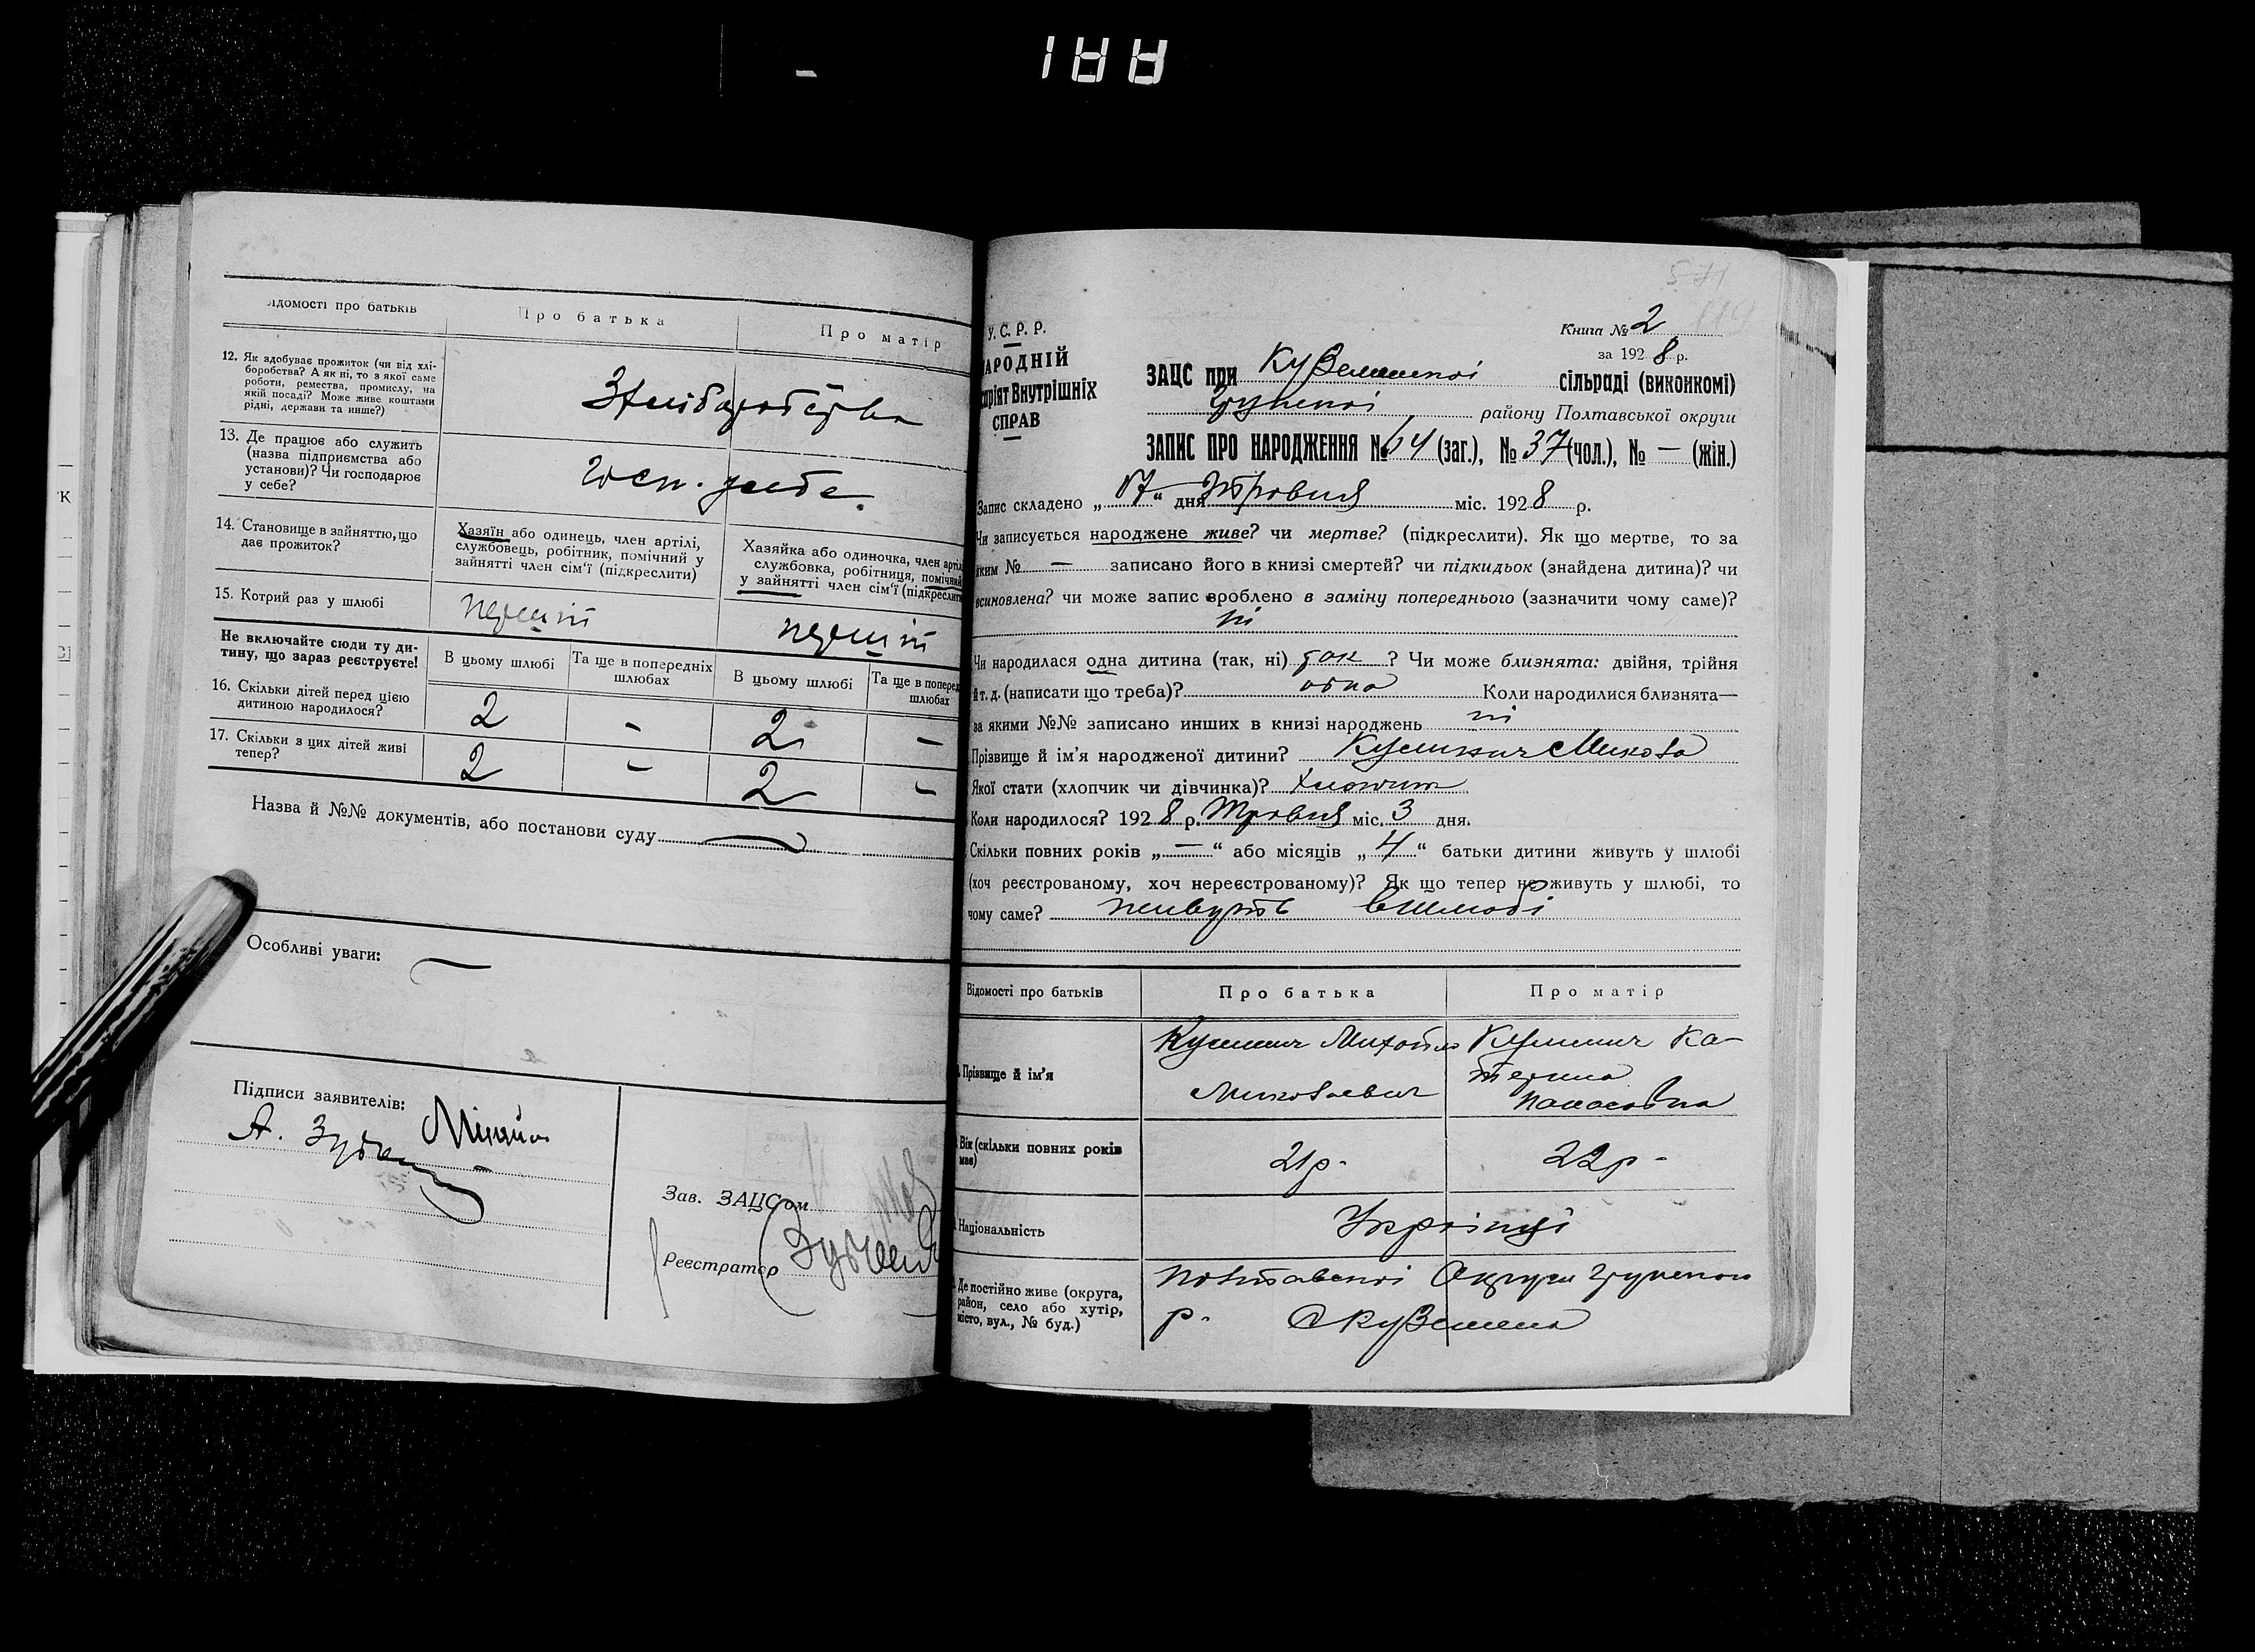 188
Відомості про батьків
Про батька
Про матір
12. Як здобуває прожиток (чи від хлі-
боробства? А як ні, то з якої саме
роботи, ремества, промислу, на
якій посаді? Може живе коштами
рідні, держави та инше?)
З хліборобства
13. Де працює або служить
(назва підприємства або
установи)? Чи господарює
у себе?
Госп. у себе
14. Становище в зайняттю, що
дає прожиток?
Хазяїн або одинець, член артілі,
службовець, робітник, помічний у
зайнятті член сім'ї (підкреслити)
Хазяйка або одиночка, член артілі
службовка, робітниця, помічний
у зайнятті член сім'ї (підкреслити
15. Котрий раз у шлюбі
перший
перший
Не включайте сюди ту ди-
тину, що зараз реєструєте!
В цьому шлюбі
Та ще в попередніх
шлюбах
В цьому шлюбі
Та ще в поперед
шлюбах
16. Скільки дітей перед цією
дитиною народилося?
2 - 2 -
17. Скільки з цих дітей живі
тепер?
2 - 2 -
Назва й №№ документів, або постанови суду
Особливі уваги: —
Підписи заявителів:
А.
Зав. ЗАЦСом
Реєстратор
У. С. Р. Р.
НАРОДНІЙ
Комісаріят Внутрішніх
СПРАВ
Книга № 2
за 1928 р.
ЗАЦС при Куземенській сільраді (виконкомі)
району Полтавської округи
ЗАПИС ПРО НАРОДЖЕННЯ № 64 (заг.), № 37 (чол.), № — (жін.)
Запис складено „ 17 “ дня Травня міс. 1928 р.
Чи записується народжене живе? чи мертве? (підкреслити). Як що мертве, то за
яким № — записано його в книзі смертей? чи підкидьок (знайдена дитина)? чи
всиновлена? чи може запис зроблено в заміну попереднього (зазначити чому саме)?
ні
Чи народилася одна дитина (так, ні) так ? Чи може близнята: двійня, трійня
й т. д. (написати що треба)? одна Коли народилися близнята—
за якими №№ записано инших в книзі народжень ні
Прізвище й ім'я народженої дитини? Микола
Якої стати (хлопчик чи дівчинка)? хлопчик
Коли народилося? 1928 р. Травня міс. 3 дня.
Скільки повних років „ — “ або місяців „ 4 “ батьки дитини живуть у шлюбі
(хоч реєстрованому, хоч нереєстрованому)? Як що тепер не живуть у шлюбі, то
чому саме? в шлюбі
Відомості про батьків
Про батька
Про матір
Прізвище й ім'я
Михайло
Миколаевич
Ка-
терина
Панасовна
Вік (скільки повних років
має)
21 р.
22 р.
Національність
Українці
Де постійно живе (округа,
район, село або хутір,
місто, вул., № буд.)
Полтавської Округи
р. с Куземена